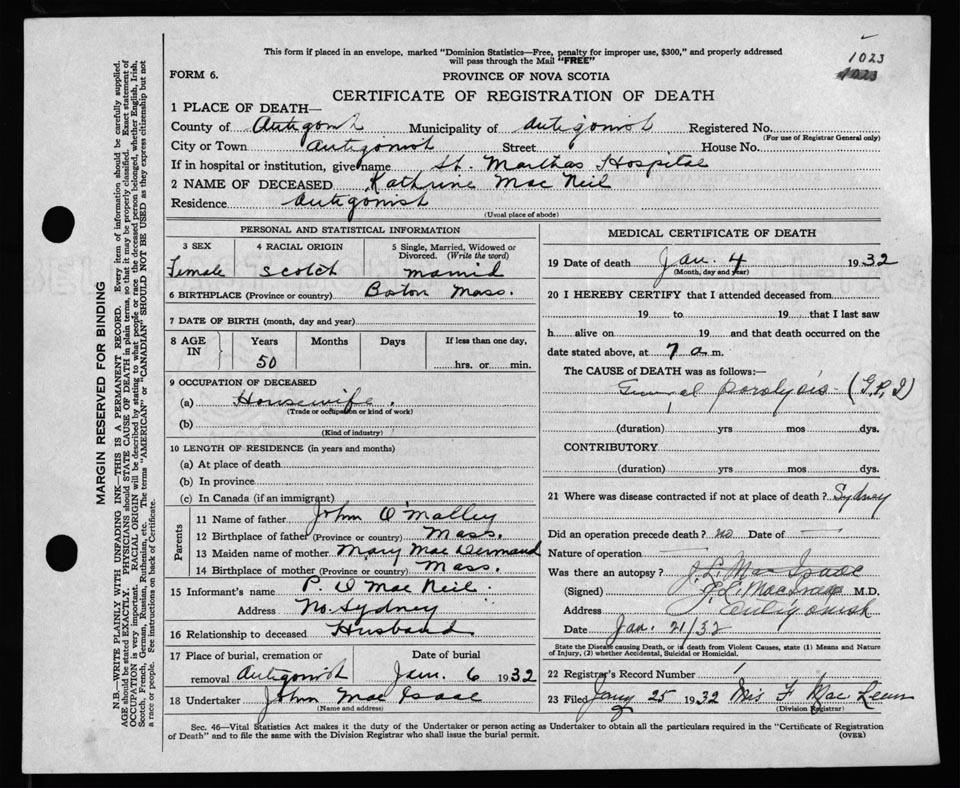 This form if placed in an envelope, marked "Dominion Statistics—Free, penalty for improper use, $300," and properly addressed
will pass through the Mail "FREE"
1023
1023
FORM 6.
PROVINCE OF NOVA SCOTIA
CERTIFICATE OF REGISTRATION OF DEATH
1 PLACE OF DEATH—
County of Antigonish Municipality of Antigonish Registered No.
(For use of Registrar General only)
City or Town Antigonish Street House No.
If in hospital or institution, give name St. Marthas Hospital
2 NAME OF DECEASED Kathrine Mac Neil
Residence Antigonish
(Usual place of abode)
PERSONAL AND STATISTICAL INFORMATION
3 SEX 4 RACIAL ORIGIN 5 Single, Married, Widowed or
Divorced. (Write the word)
Female Scotch Married
6 BIRTHPLACE (Province or country) Boston Mass.
7 DATE OF BIRTH (month, day and year)
8 AGE
IN
Years Months Days If less than one day,
50 hrs. or min.
9 OCCUPATION OF DECEASED
(a) Housewife.
(Trade or occupation or kind of work)
(b)
(Kind of industry)
10 LENGTH OF RESIDENCE (in years and months)
(a) At place of death
(b) In province
(c) In Canada (if an immigrant)
Parents
11 Name of father John O'Malley
12 Birthplace of father (Province or country) Mass.
13 Maiden name of mother Mary Mac Dermand
14 Birthplace of mother (Province or country) Mass.
15 Informant's name P. O Mac Neil
Address No. Sydney
16 Relationship to deceased Husband
17 Place of burial, cremation or Date of burial
removal Antigonish Jan. 6 1932
18 Undertaker John Mac Isaac
(Name and address)
MEDICAL CERTIFICATE OF DEATH
19 Date of death Jan. 4 1932
(Month, day and year)
20 I HEREBY CERTIFY that I attended deceased from
19 to 19 that I last saw
h alive on 19 and that death occurred on the
date stated above, at 7 a m.
The CAUSE of DEATH was as follows:—
General Paralysis - (G.P.I)
(duration) yrs mos dys.
CONTRIBUTORY
(duration) yrs mos dys.
21 Where was disease contracted if not at place of death? Sydney
Did an operation precede death? no Date of —
Nature of operation —
Was there an autopsy? J. L. Mac Isaac
(Signed) J. L. MacIsaac M.D.
Address Antigonish
Date Jan. 21/32
State the Disease causing Death, or in death from Violent Causes, state (1) Means and Nature
of Injury, (2) whether Accidental, Suicidal or Homicidal.
22 Registrar's Record Number 1
23 Filed Jany 25 1932 F. Mac Lean
(Division Registrar)
Sec. 46—Vital Statistics Act makes it the duty of the Undertaker or person acting as Undertaker to obtain all the particulars required in the "Certificate of Registration
of Death" and to file the same with the Division Registrar who shall issue the burial permit.
(OVER)
MARGIN RESERVED FOR BINDING
N.B.—WRITE PLAINLY WITH UNFADING INK—THIS IS A PERMANENT RECORD. Every item of information should be carefully supplied.
AGE should be stated EXACTLY. PHYSICIANS should STATE CAUSE OF DEATH in plain terms, so that it may be properly classified. Exact statement of
OCCUPATION is very important. RACIAL ORIGIN will be described by stating to what people or race the deceased person belonged, whether English, Irish,
Scotch, French, German, Russian, Ruthenian, etc. The terms "AMERICAN" or "CANADIAN" SHOULD NOT BE USED as they express citizenship but not
a race or people. See instructions on back of Certificate.